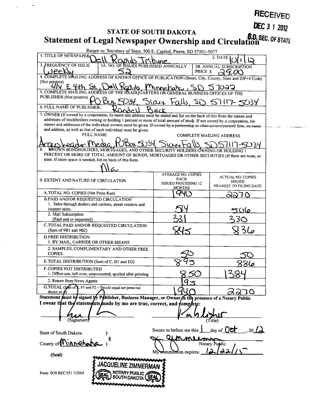 RECEIVED
DEC 31 2012
S.D. SEC. OF STATE
STATE OF SOUTH DAKOTA
Statement of Legal Newspaper Ownership and Circulation
Return to: Secretary of State, 500 E. Capitol, Pierre, SD 57501-5077
1. TITLE OF NEWSPAPER Dell Rapids Tribune 2. DATE 10/1/12
3. FREQUENCY OF ISSUE Weekly
3A. NO. OF ISSUES PUBLISHED ANNUALLY 52
3B. ANNUAL SUBSCRIPTION PRICE $ 29.00
4. COMPLETE MAILING ADDRESS OF KNOWN OFFICE OF PUBLICATION (Street, City, County, State and ZIP+4 Code) (Not printers)
E 4th St, Dell Rapids, SD 57022
5. COMPLETE MAILING ADDRESS OF THE HEADQUARTERS OR GENERAL BUSINESS OFFICES OF THE PUBLISHER (Not printer)
PO Box 5034, Sioux Falls, SD 57117-5034
6. FULL NAME OF PUBLISHER: Randell Beck
7. OWNER (If owned by a corporation, its name and address must be stated and
FULL NAME COMPLETE MAILING ADDRESS
Argus Leader Media, PO Box 5034, Sioux Falls, SD 57117-5034
8. KNOWN BONDHOLDERS, MORTGAGEES, AND OTHER SECURITY HOLDERS OWNING OR HOLDING 1
PERCENT OR MORE TOTAL AMOUNT OF BONDS, MORTGAGES OR OTHER SECURITIES (If there are none, so
state. If more space is needed, list on back of this form.
n/a
9. EXTENT AND NATURE OF CIRCULATION
AVERAGE NO. COPIES EACH ISSUED PRECEDING 12 MONTHS
ACTUAL NO. COPIES ISSUED NEAREST TO FILING DATE
A. TOTAL NO. COPIES (Net Press Run) 1940 2270
B. PAID AND/OR REQUESTED CIRCULATION
1. Sales through dealers and carriers, street vendors and counter sales. 514 506
2. Mail Subscription (Paid and or requested) 331 330
C. TOTAL PAID AND/OR REQUESTED CIRCULATION (Sum of 9B1 and 9B2) 845 836
D. FREE DISTRIBUTION
1. BY MAIL, CARRIER OR OTHER MEANS
2. SAMPLES, COMPLIMENTARY AND OTHER FREE COPIES 50 50
E. TOTAL DISTRIBUTION (Sum of C, D1 and D2) 895 886
F. COPIES NOT DISTRIBUTED
1. Office use, left over, unaccounted, spoiled after printing 850 1384
2. Return from News Agents 195
G. TOTAL 1940 2270
Statement must be signed by Publisher, Business Manager, or Owner in the presence of a Notary Public
I swear that the statements made by me are true, correct, and complete:
(Signature) Publisher (Title)
State of South Dakota )
County of Minnehaha )
(Seal)
Sworn to before me this 1 day of Oct, 2012
J Zimmerman
Notary Public
My commission expires: 12/22/15
Form: SOS REC 051 7/2004
JACQUELINE ZIMMERMAN
NOTARY PUBLIC
SOUTH DAKOTA
SEAL SEAL